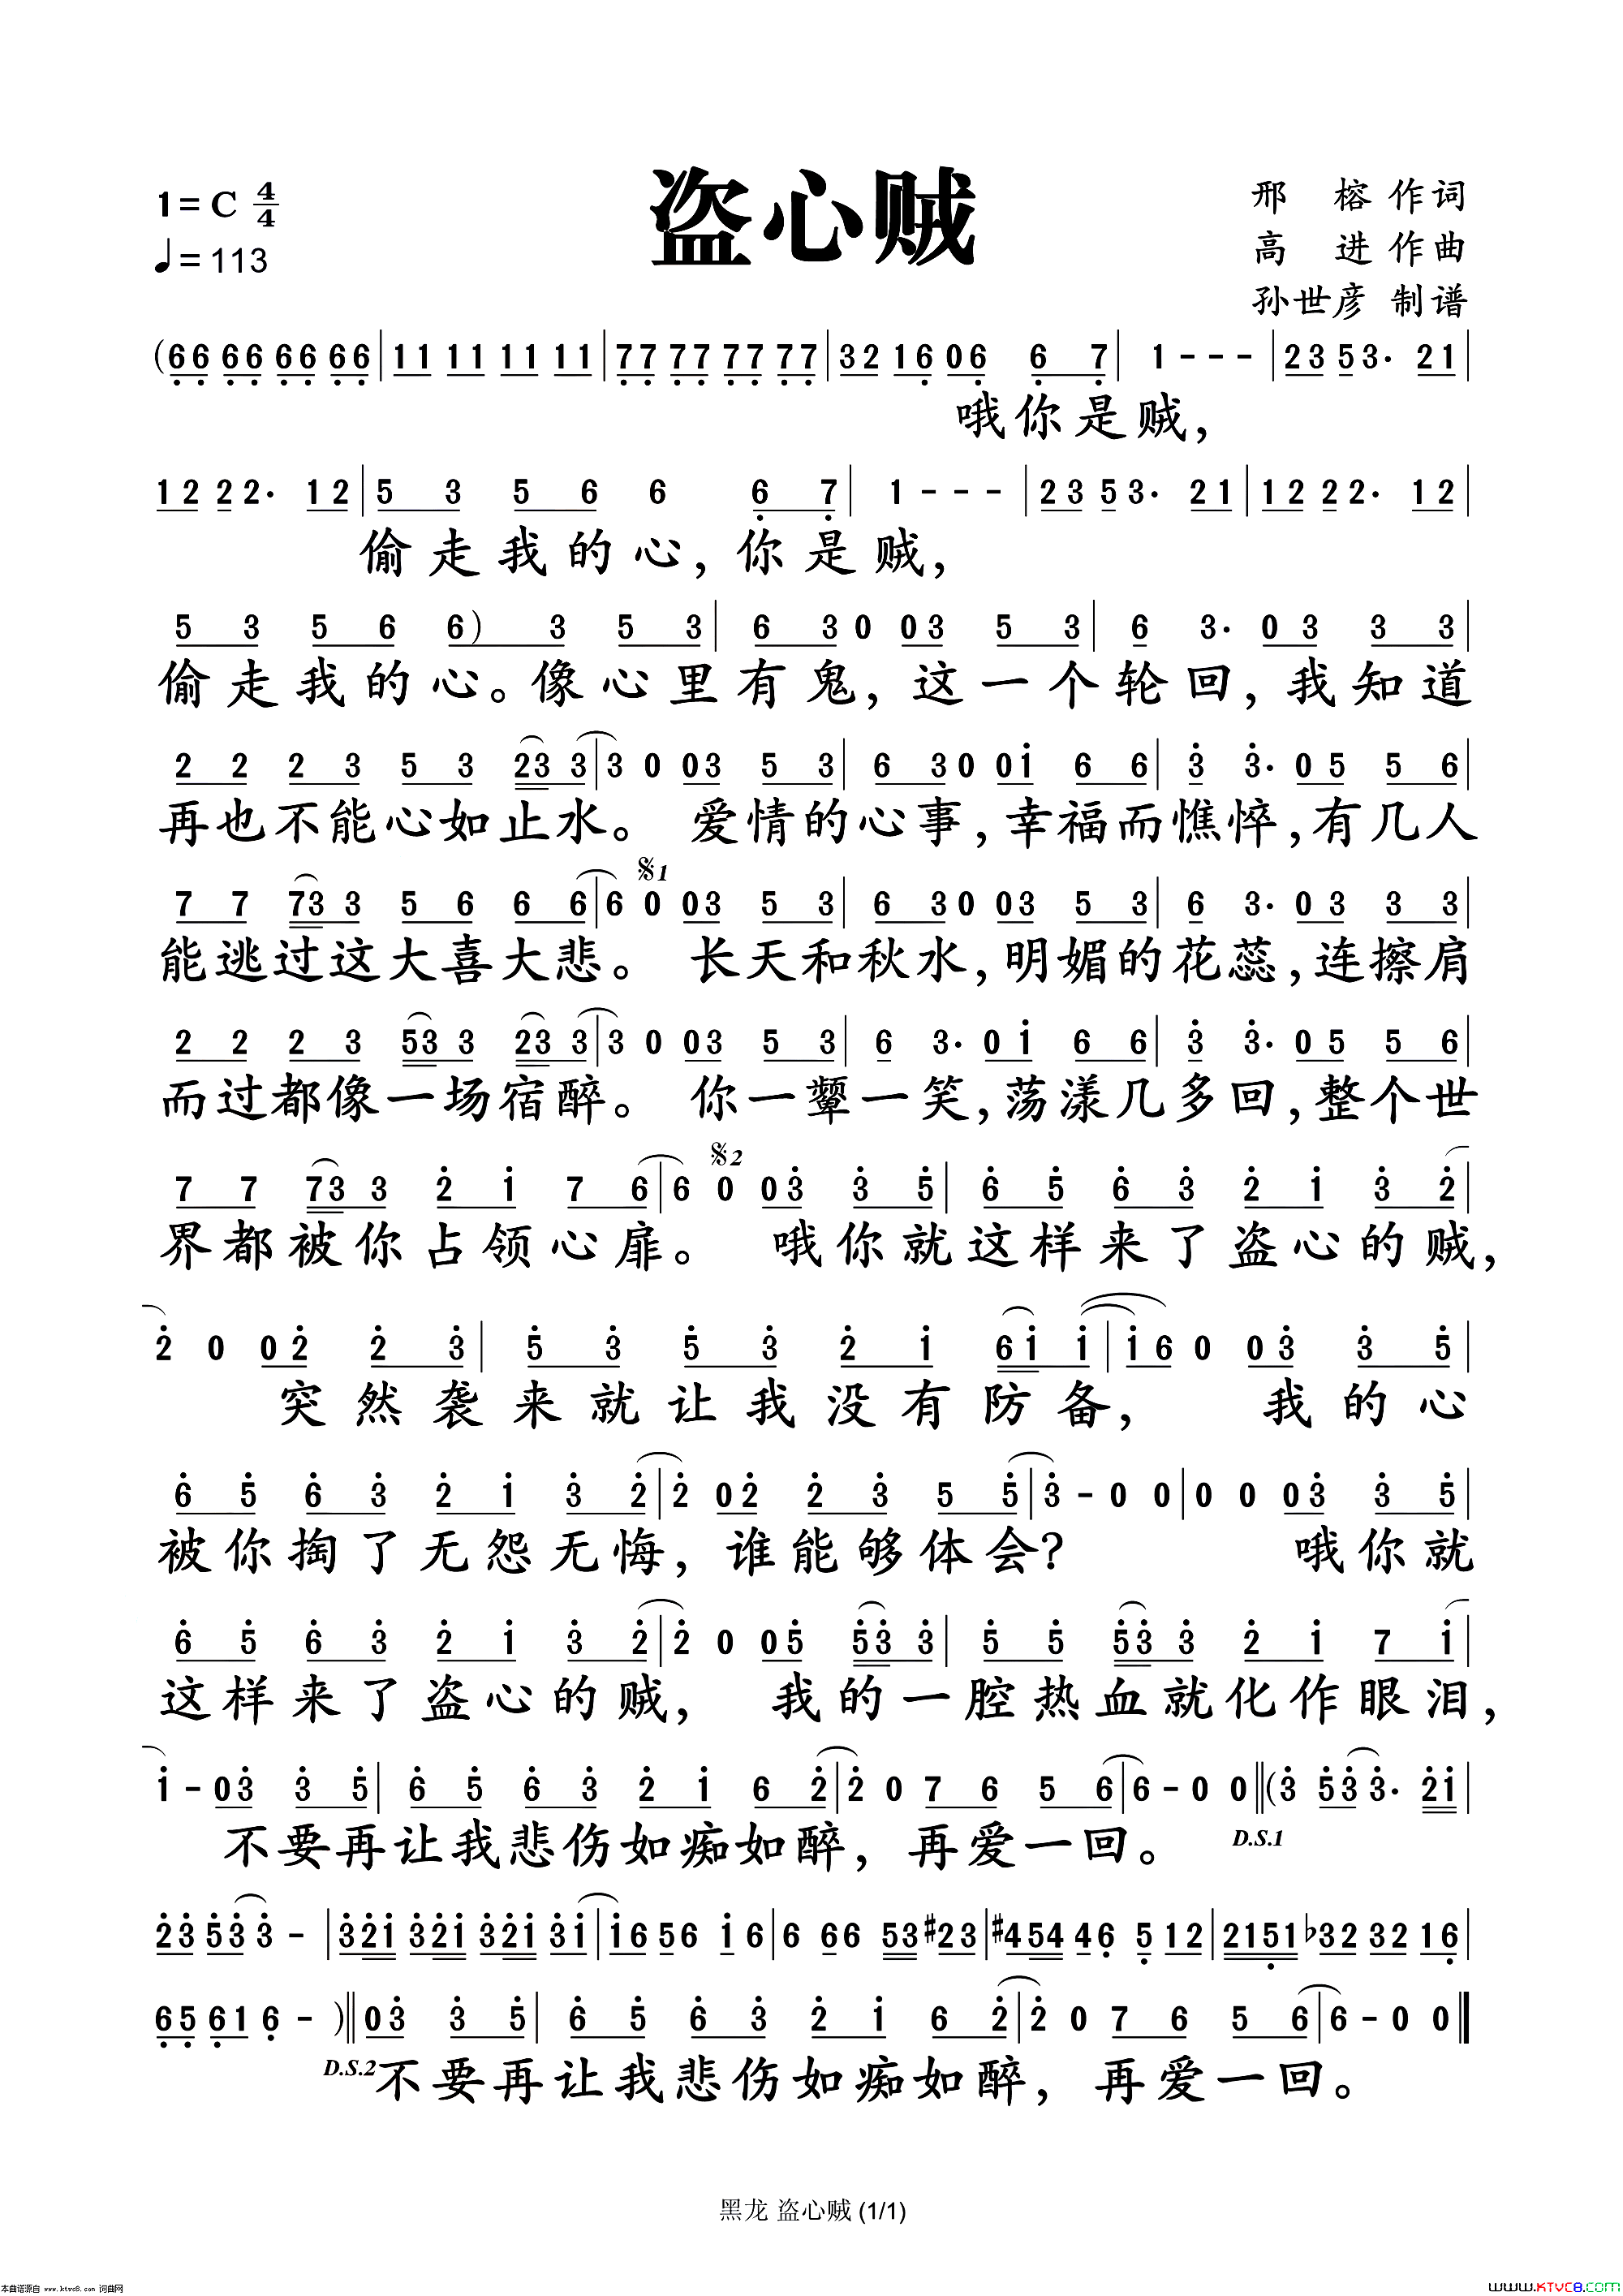 盗心贼
1=C 4/4
♩=113
邢 榕 作词
高 进 作曲
孙世彦 制谱
(66 66 66 66|11 11 11 11|77 77 77 77|32 16 06 6 7|1 - - -|23 53· 21|
哦你是贼,
12 22· 12|5 3 5 6 6 6 7|1 - - -|23 53· 21|12 22· 12|
偷走我的心,你是贼,
5 3 5 6 6) 3 5 3|6 3 0 03 5 3|6 3· 03 3 3|
偷走我的心。像心里有鬼,这一个轮回,我知道
2 2 2 3 5 3 23 3|3 0 03 5 3|6 3 0 0i 6 6|3 3· 05 5 6|
再也不能心如止水。 爱情的心事,幸福而憔悴,有几人
𝄋1
7 7 73 3 5 6 6 6|6 0 03 5 3|6 3 0 03 5 3|6 3· 03 3 3|
能逃过这大喜大悲。 长天和秋水,明媚的花蕊,连擦肩
2 2 2 3 53 3 23 3|3 0 03 5 3|6 3· 0i 6 6|3 3· 05 5 6|
而过都像一场宿醉。 你一颦一笑,荡漾几多回,整个世
𝄋2
7 7 73 3 2 i 7 6|6 0 03 3 5|6 5 6 3 2 i 3 2|
界都被你占领心扉。 哦你就这样来了盗心的贼,
2 0 02 2 3|5 3 5 3 2 i 6i i|i6 0 03 3 5|
突然袭来就让我没有防备, 我的心
6 5 6 3 2 i 3 2|2 02 2 3 5 5|3 - 0 0|0 0 03 3 5|
被你掏了无怨无悔,谁能够体会? 哦你就
6 5 6 3 2 i 3 2|2 0 05 53 3|5 5 53 3 2 i 7 i|
这样来了盗心的贼, 我的一腔热血就化作眼泪,
i - 03 3 5|6 5 6 3 2 i 6 2|2 0 7 6 5 6|6 - 0 0‖(3 53 3· 2i|
D.S.1
不要再让我悲伤如痴如醉,再爱一回。
23 53 3 -|32i 32i 32i 3i|i6 56 i 6|6 66 53 #23|#454 46 5 12|2151 b32 32 16|
65 61 6 - )‖03 3 5|6 5 6 3 2 i 6 2|2 0 7 6 5 6|6 - 0 0‖
D.S.2
不要再让我悲伤如痴如醉,再爱一回。
黑龙 盗心贼 (1/1)
本曲谱源自 www.ktvc8.com 词曲网
WWW.KTVC8.COM